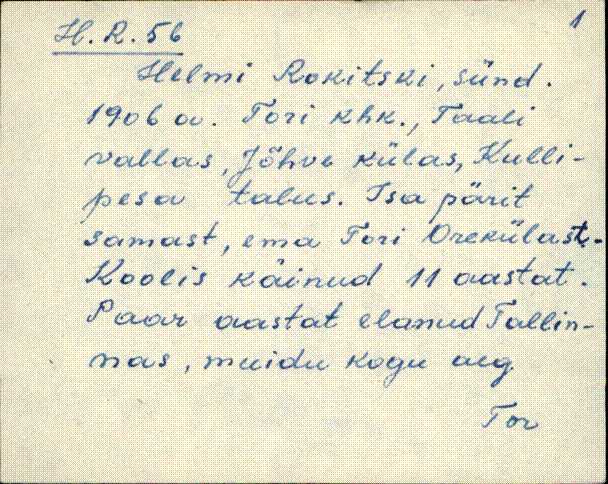 1
H. R. 56
Helmi Rokitski, sünd.
1906 a. Tori khk., Taali
vallas, Jõhve külas, Kulli-
pesa talus. Isa pärit
samast, ema Tori Orekülast.
Koolis käinud 11 aastat.
Paar aastat elanud Tallin-
nas, muidu kogu aeg
Tor